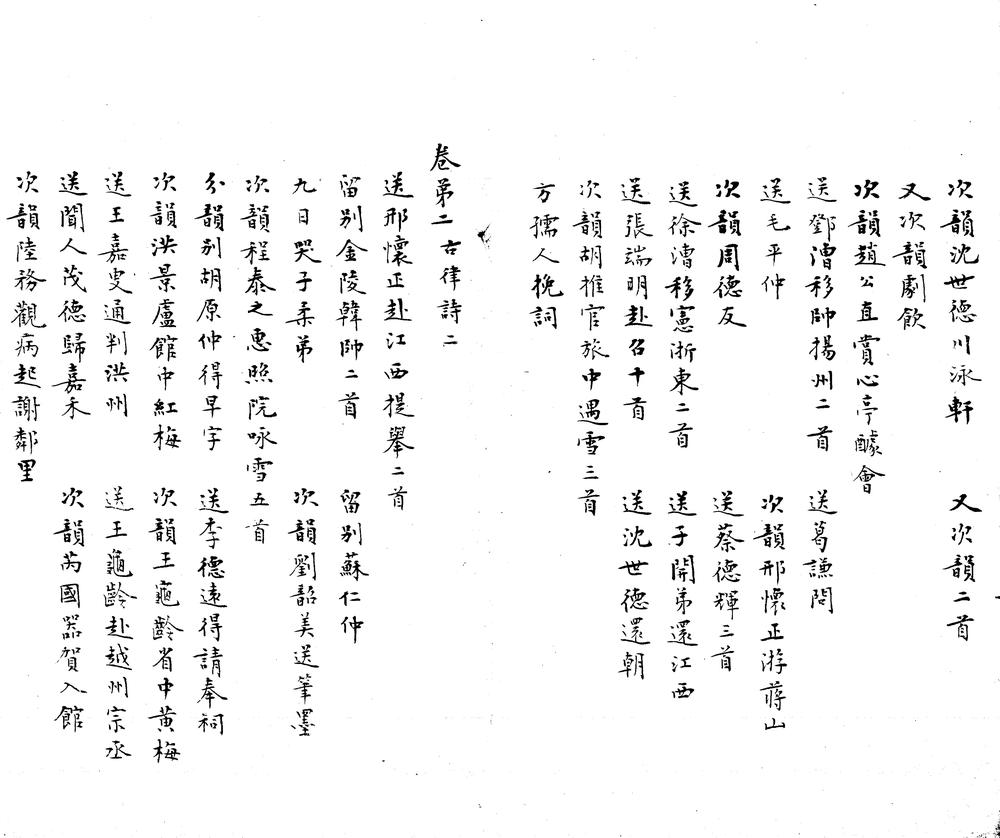 次韻沈世德川泳軒　又次韻二首
又次韻劇飲
次韻趙公直賞心亭醵會
送鄧漕移帥揚州二首　送葛謙問
送毛平仲　次韻邢懷正游蔣山
次韻周德友　送蔡德輝三首
送徐漕移憲浙東二首　送子開弟還江西
送張端明赴召十首　送沈世德還朝
次韻胡推官旅中遇雪三首
方孺人挽詞
卷第二　古律詩二
送邢懷正赴江西提舉二首
留別金陵韓帥二首　留別蘇仁仲
九日哭子柔弟　次韻劉韶美送筆墨
次韻程泰之惠照院咏雪五首
分韻別胡原仲得早字　送李德遠得請奉祠
次韻洪景盧館中紅梅　次韻王龜齡省中黃梅
送王嘉叟通判洪州　送王龜齡赴越州宗丞
送聞人茂德歸嘉禾　次韻芮國器賀入館
次韻陸務觀病起謝鄰里